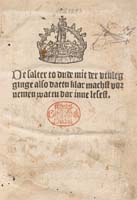 De salter to dude mit der vthleg
ginge also dattu klar machst vor
nemen wattu dar inne lesest.